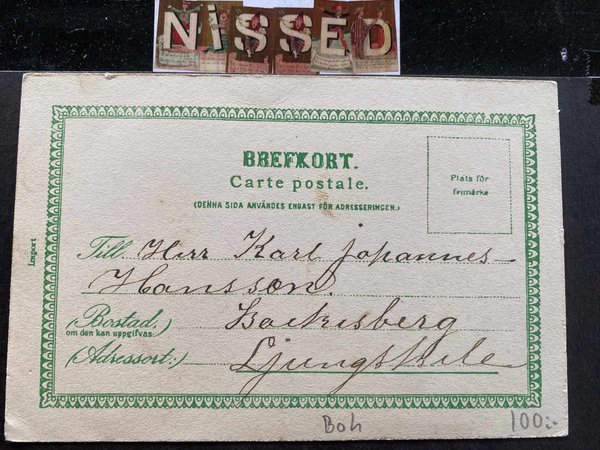 NISSED
BREFKORT.
Carte postale.
(DENNA SIDA ANVÄNDES ENDAST FÖR ADRESSERINGEN.)
Plats för
frimärke
Import
Till. Herr Karl Johannes-
Hansson.
(Bostad: Backisberg
om den kan uppgifvas:)
(Adressort:) Ljungskile
Boh
100:-